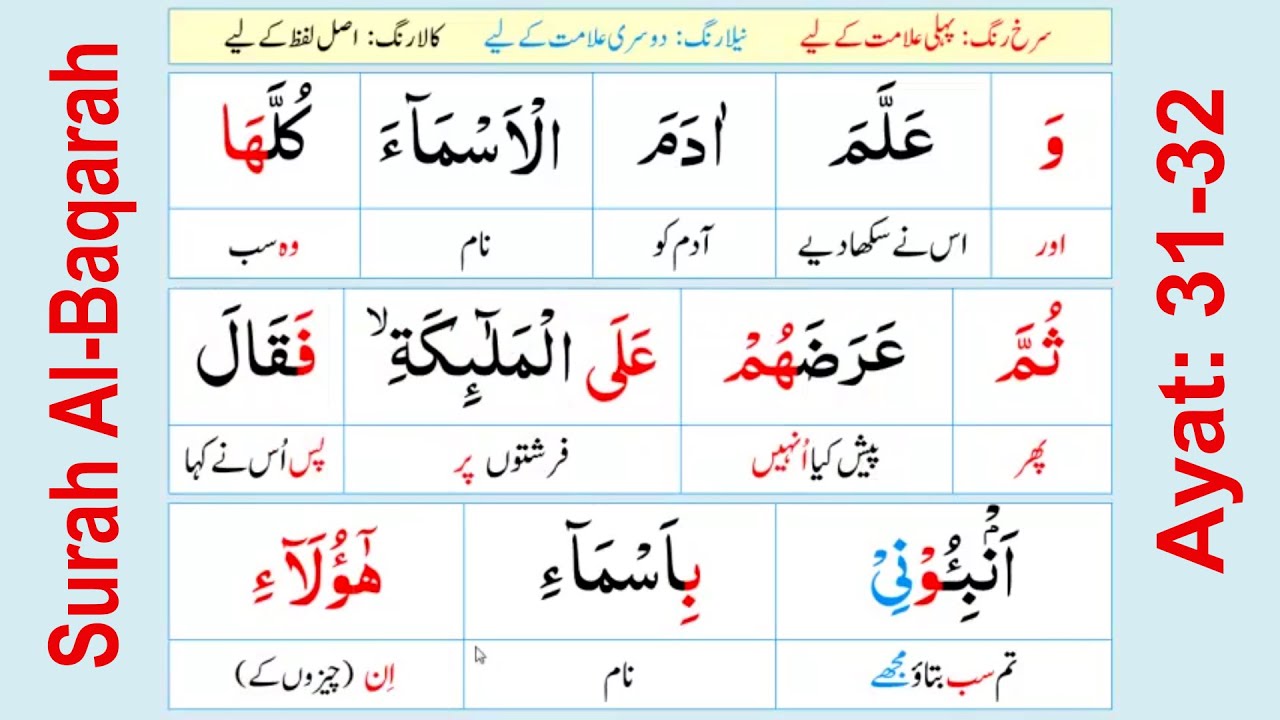 Surah Al-Baqarah
سرخ رنگ: پہلی علامت کے لیے نیلا رنگ: دوسری علامت کے لیے کالا رنگ: اصل لفظ کے لیے
وَ عَلَّمَ اٰدَمَ الْاَسْمَآءَ كُلَّهَا
اور اس نے سکھا دیے آدم کو نام وہ سب
ثُمَّ عَرَضَهُمْ عَلَى الْمَلٰٓئِكَةِ ۙ فَقَالَ
پھر پیش کیا اُنہیں فرشتوں پر پس اُس نے کہا
اَنْۢبِـُٔوْنِیْ بِاَسْمَآءِ هٰۤؤُلَآءِ
تم سب بتاؤ مجھے نام اِن (چیزوں کے)
Ayat: 31-32